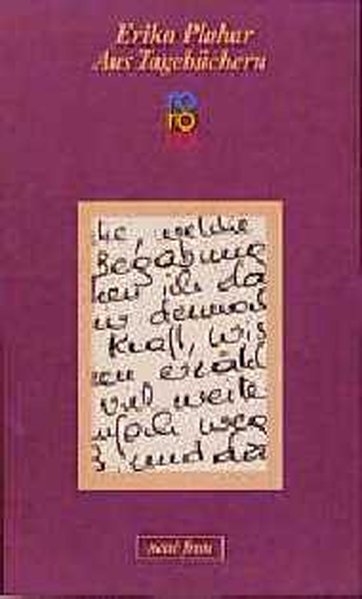 Erika Pluhar
Aus Tagebüchern
ro
ro
ro
he, welche
Begabung
nen ich da
dennoch
Kraft, wis
nen erzähl
und weite
nfach weg
und das
neue frau